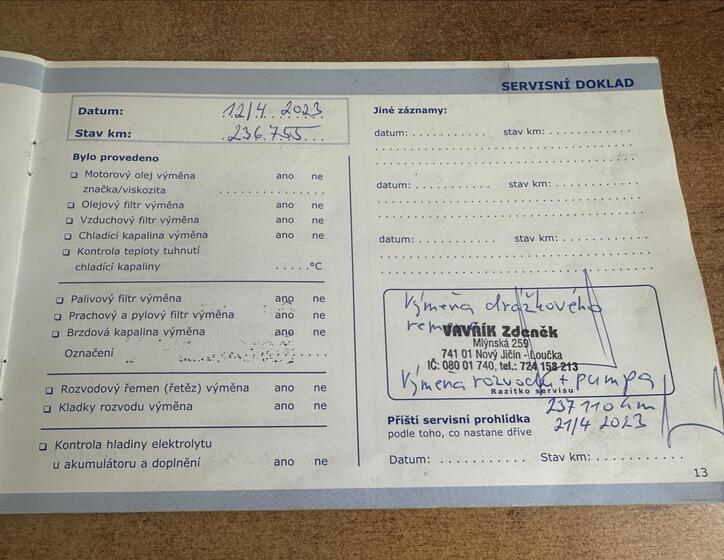 SERVISNÍ DOKLAD
Datum: 12/4 2023
Stav km: 236.755
Bylo provedeno
Motorový olej výměna ano ne
značka/viskozita
Olejový filtr výměna ano ne
Vzduchový filtr výměna ano ne
Chladící kapalina výměna ano ne
Kontrola teploty tuhnutí
chladící kapaliny .....°C
Palivový filtr výměna ano ne
Prachový a pylový filtr výměna ano ne
Brzdová kapalina výměna ano ne
Označení
Rozvodový řemen (řetěz) výměna ano ne
Kladky rozvodu výměna ano ne
Kontrola hladiny elektrolytu
u akumulátoru a doplnění ano ne
Jiné záznamy:
datum: stav km:
datum: stav km:
datum: stav km:
Výměna drážkového
VAVŘÍK Zdeněk
Mlýnská 259
741 01 Nový Jičín - Loučka
IČ: 080 01 740, tel.: 724 158 213
Výměna rozvodu + pumpa
Razítko servisu
237110 km
21/4 2023
Příští servisní prohlídka
podle toho, co nastane dříve
Datum: Stav km:
13